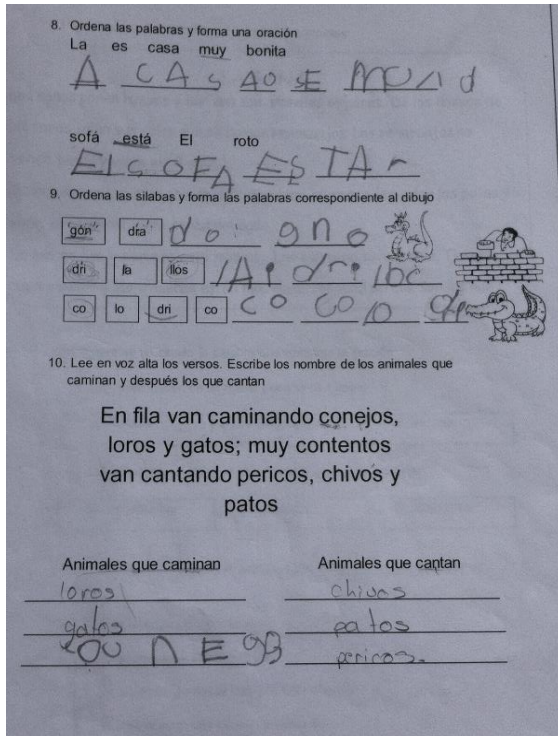 8. Ordena las palabras y forma una oración
La es casa muy bonita
A CASAOSE
sofá está El roto
El SOFA ES TA r
9. Ordena las silabas y forma las palabras correspondiente al dibujo
gón dra do gno
dri la llos lAi dri
co lo dri co co co lo
10. Lee en voz alta los versos. Escribe los nombre de los animales que
caminan y después los que cantan
En fila van caminando conejos,
loros y gatos; muy contentos
van cantando pericos, chivos y
patos
Animales que caminan Animales que cantan
loros chivos
gatos patos
pericos.